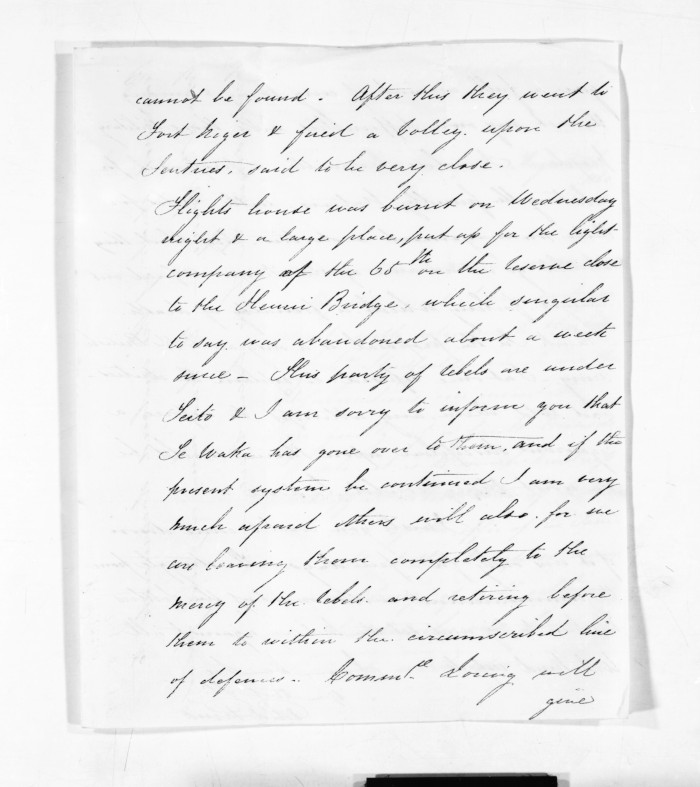 cannot be found. After this they went to
Fort Niger & fired a Volley upon the
Sentries, said to be very close.
Flights house was burnt on Wednesday
night & a large place, put up for the light
company of the 65th on the reserve close
to the Henui Bridge, which singular
to say was abandoned about a week
since - This party of rebels are under
Teito & I am sorry to inform you that
Te Waka has gone over to them, and if the
present system be continued I am very
much afraid others will also. for we
are leaving them completely to the
mercy of the rebels and retiring before
them to within the circumscribed line
of defences. Command Loring will
give